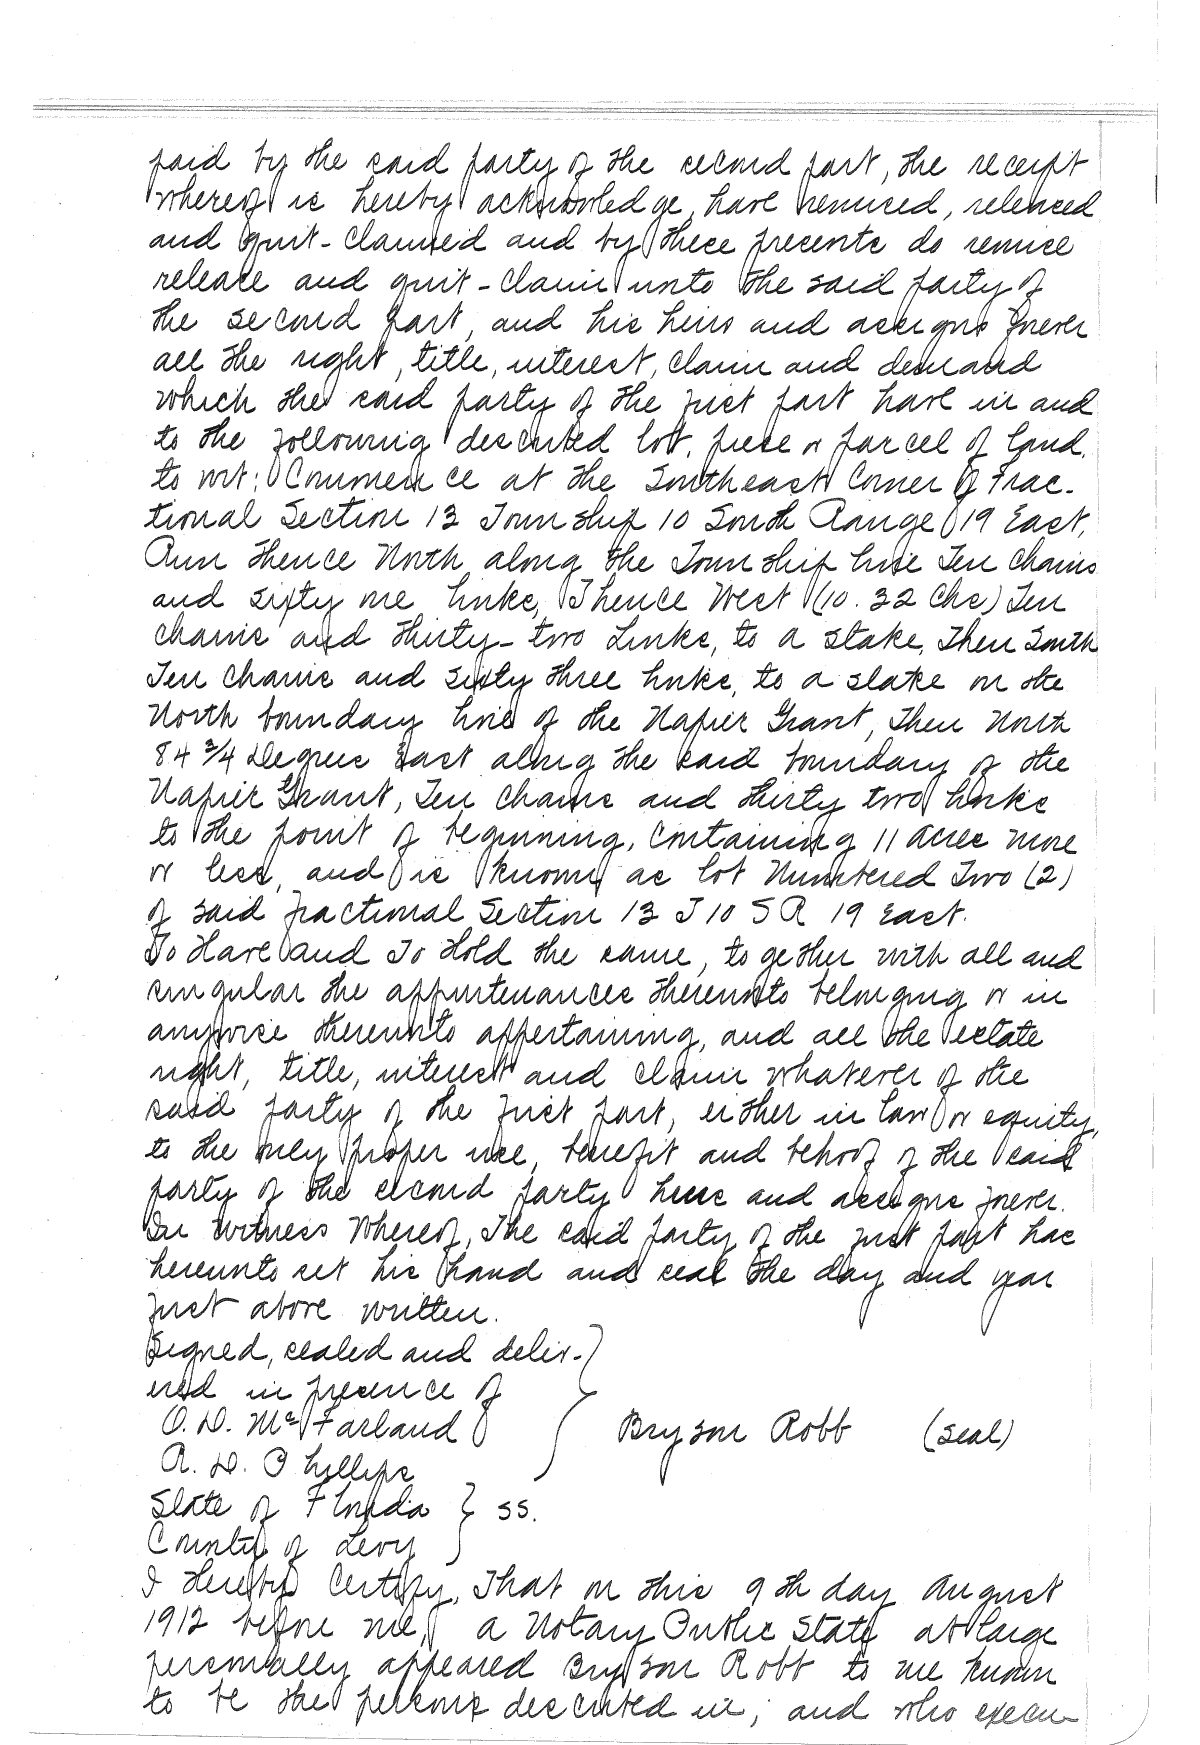 paid by the said party of the second part, the receipt
whereof is hereby acknowledge, have remised, released
and quit-claimed and by these presents do remise
release and quit-claim unto the said party of
the second part, and his heirs and assigns forever
all the right, title, interest, claim and demand
which the said party of the first part have in and
to the following described lot, piece or parcel of land,
to wit: Commence at the Southeast Corner of Frac-
tional Section 13 Township 10 South Range 19 East,
Run thence North along the Township line Ten Chains
and sixty one links, Thence West (10.32 Chs) Ten
chains and thirty-two Links, to a stake, Then South
Ten Chains and sixty three links, to a stake on the
North boundary line of the Napier Grant, Then North
84 3/4 Degrees East along the said boundary of the
Napier Grant, Ten Chains and thirty two links
to the point of beginning, Containing 11 acres more
or less, and is known as lot Numbered Two (2)
of said fractional Section 13 T 10 S R 19 East.
To Have and To Hold the same, together with all and
singular the appurtenances thereunto belonging or in
anywise thereunto appertaining, and all the estate
right, title, interest and claim whatever of the
said party of the first part, either in law or equity,
to the only proper use, benefit and behoof of the said
party of the second party heirs and assigns forever.
In Witness Whereof, The said party of the first part has
hereunto set his hand and seal the day and year
first above written.
Signed, sealed and deliv-
ered in presence of
O. D. McFarland
Bryson Robb (seal)
R. D. Phillips
State of Florida } ss.
County of Levy
I Hereby Certify, That on this 9th day August
1912 before me, a Notary Public State at large
personally appeared Bryson Robb to me known
to be the persons described in, and who execu-